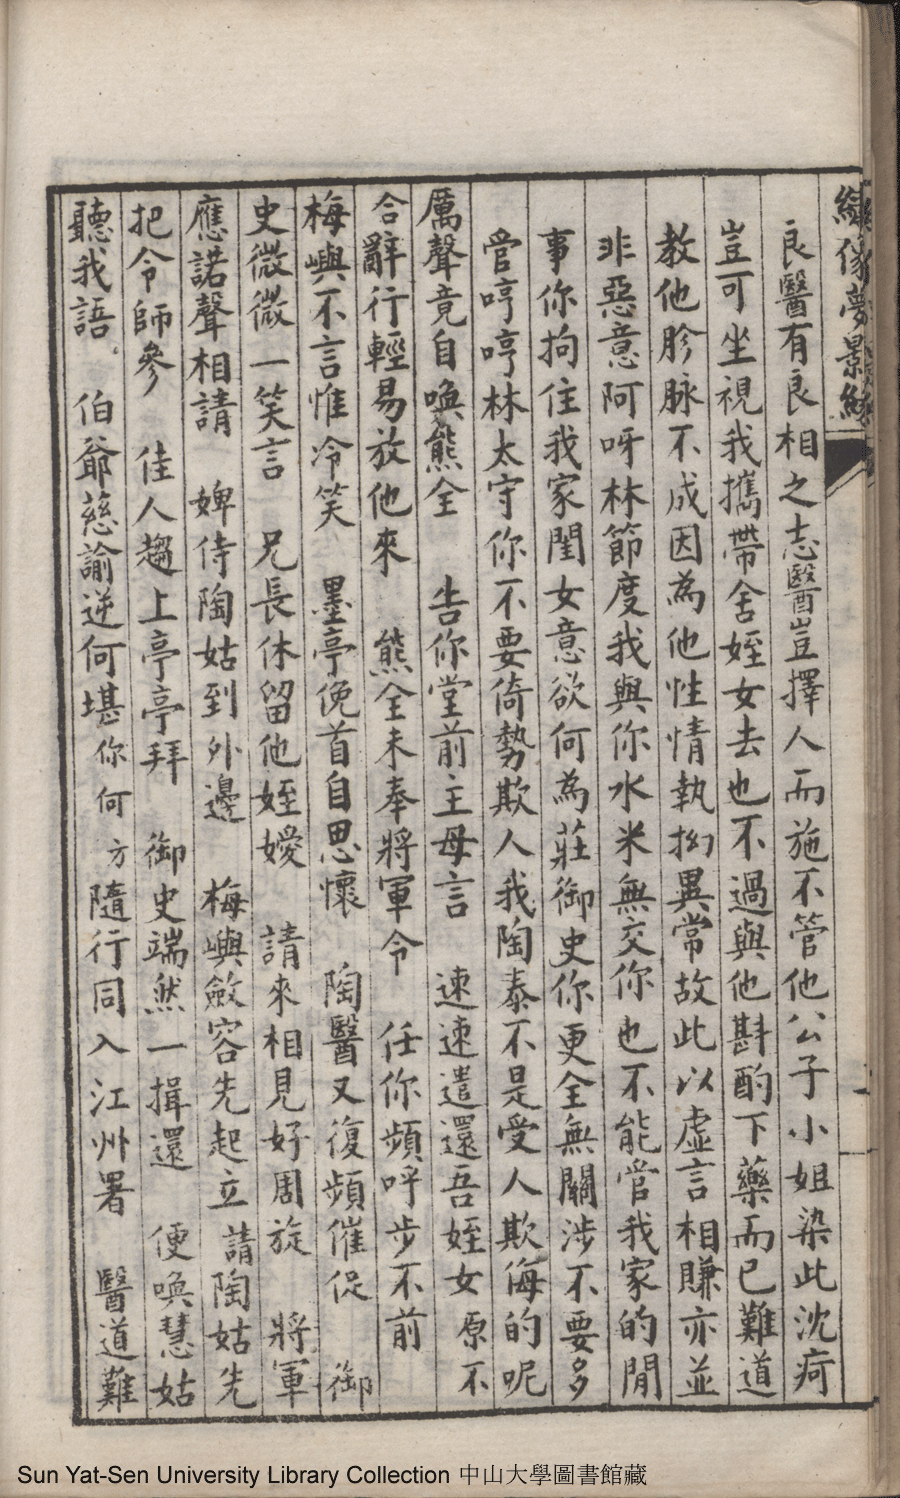 繡像夢影緣
良醫有良相之志醫豈擇人而施不管他公子小姐染此沈疴
豈可坐視我攜帶舍姪女去也不過與他斟酌下藥而已難道
教他胗脉不成因為他性情執拗異常故此以虛言相賺亦並
非惡意阿呀林節度我與你水米無交你也不能管我家的閒
事你拘住我家閨女意欲何為莊御史你更全無關涉不要多
管哼哼林太守你不要倚勢欺人我陶泰不是受人欺侮的呢
厲聲竟自喚熊全 告你堂前主母言 速速遣還吾姪女 原不
合辭行輕易放他來 熊全未奉將軍令 任你頻呼步不前
梅嶼不言惟冷笑 墨亭俛首自思懷 陶醫又復頻催促 御
史微微一笑言 兄長休留他姪嬡 請來相見好周旋 將軍
應諾聲相請 婢侍陶姑到外邊 梅嶼斂容先起立 請陶姑先
把令師參 佳人趨上亭亭拜 御史端然一揖還 便喚慧姑
聽我語 伯爺慈諭逆何堪 你何方隨行同入江州署 醫道難
Sun Yat-Sen University Library Collection 中山大學圖書館藏